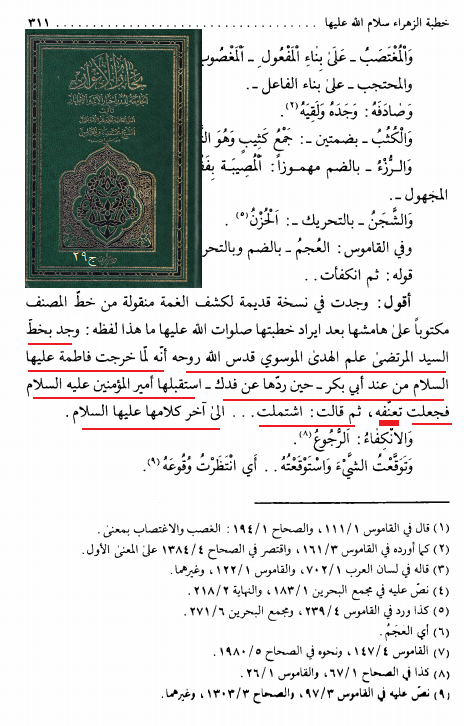 خطبة الزهراء سلام الله عليها ........ ٣١١
وَالْمُغْتَصَبُ ـ عَلىٰ بِنَاءِ الْمَفْعُولِ ـ الْمَغْصُوبُ
والمحتجب ـ على بناء الفاعل ـ.
وَصَادَفَهُ : وَجَدَهُ وَلَقِيَهُ (٢).
وَالْكُثُبُ ـ بضمتين ـ: جَمْعُ كَثِيبٍ وَهُوَ
وَالرُّزْءُ ـ بالضم مهموزاً : الْمُصِيبَة
المجهول ـ.
وَالشَّجَنُ ـ بالتحريك ـ: الْحُزْنُ (٥) .
وفي القاموس : العُجمُ ـ بالضم وبالتحر
قوله : ثم انكفأت . .
أقول : وجدت في نسخة قديمة لكشف الغمة منقولة من خطّ المصنف
مكتوباً على هامشها بعد ايراد خطبتها صلوات الله عليها ما هذا لفظه : وجد بخطّ
السيد المرتضىٰ علم الهدىٰ الموسوي قدس الله روحه أنّه لمّا خرجت فاطمة عليها
السلام من عند أبي بكر ـ حين ردّها عن فدك ـ استقبلها أمير المؤمنين عليه السلام
فجعلت تعنّفه، ثم قالت : اشتملت . . . الىٰ آخر كلامها عليها السلام .
وَالانْكِفَاءُ : الرُّجُوعُ (٨).
وَتَوَقَّعْتُ الشَّيْءَ وَاسْتَوْقَعْتُهُ . . أَي انْتَظَرْتُ وُقُوعَهُ (٩).
(١) قال في القاموس ١١١/١، والصحاح ١٩٤/١ : الغصب والاغتصاب بمعنى.
(٢) كما أورده في القاموس ١٦١/٣، واقتصر في الصحاح ١٣٨٤/٤ على المعنىٰ الأول.
(٣) قاله في لسان العرب ٧٠٢/١، والقاموس ١٢٢/١، وغيرهما.
(٤) نصّ عليه في مجمع البحرين ١٨٣/١، والنهاية ٢١٨/٢.
(٥) كذا ورد في القاموس ٢٣٩/٤، ومجمع البحرين ٢٧١/٦.
(٦) أي العَجَمُ.
(٧) القاموس ١٤٧/٤، ونحوه في الصحاح ١٩٨٠/٥.
(٨) كذا في الصحاح ٦٧/١، والقاموس ٢٦/١.
(٩) نصّ عليه في القاموس ٩٧/٣، والصحاح ١٣٠٣/٣، وغيرهما.
بحار الأنوار
ج٢٩